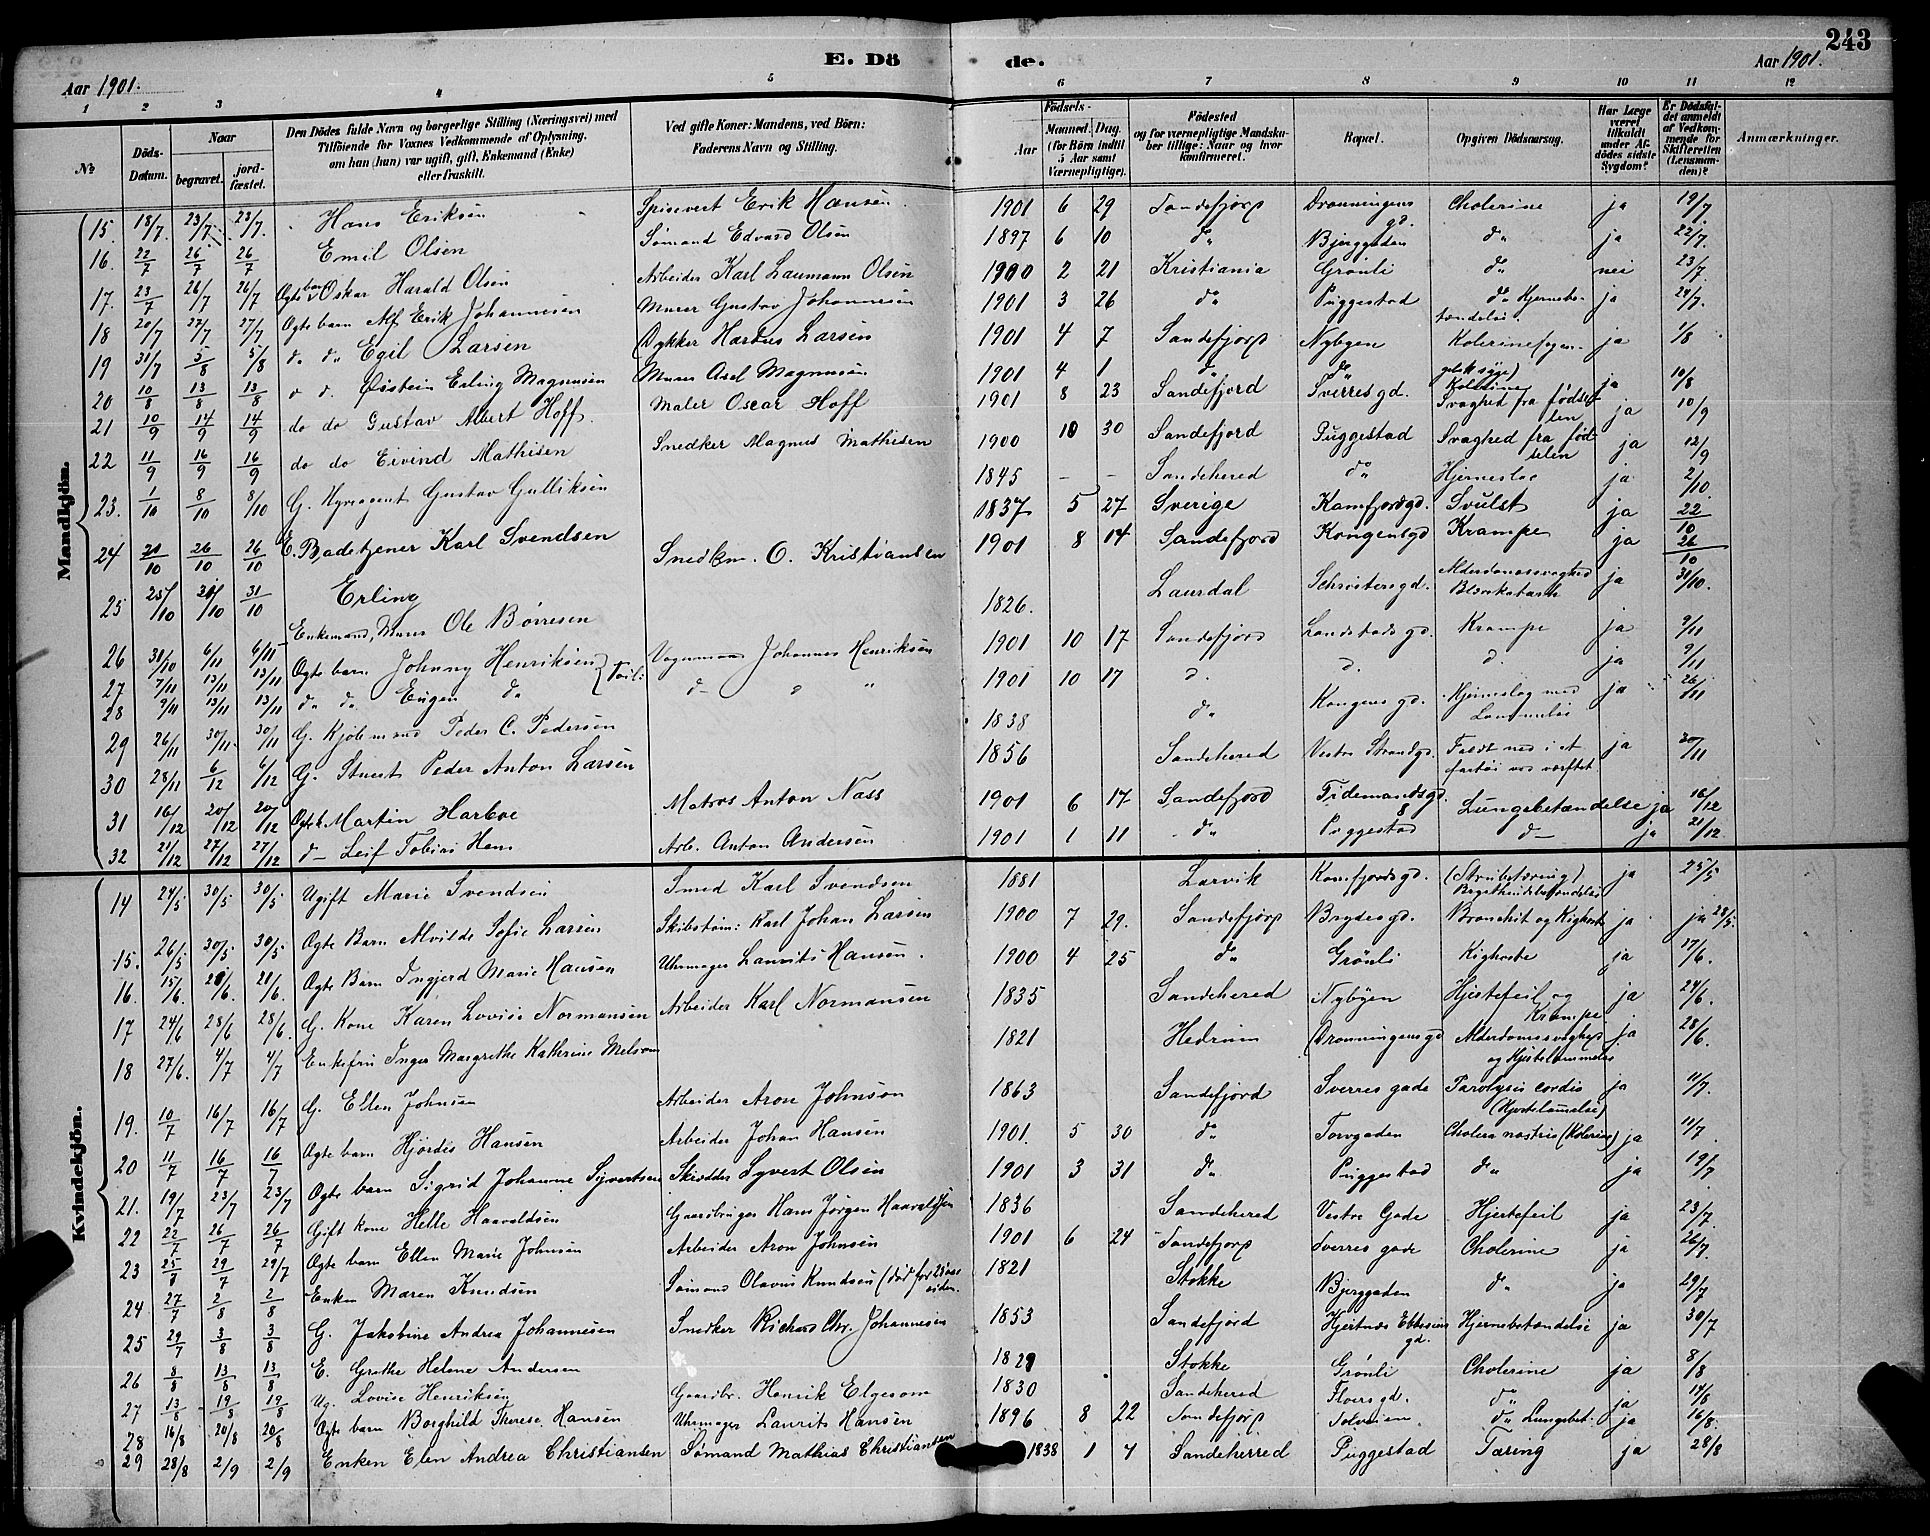 243
E. Dö de.
Aar 1901. Aar 1901.
1 2 3 4 5 6 7 8 9 10 11 12
№ Döds-Datum. Naar begravet. jordfæstet. Den Dödes fulde Navn og borgerlige Stilling (Næringsvei) med Tilföiende for Voxnes Vedkommende af Oplysning, om han (hun) var ugift, gift, Enkemand (Enke) eller fraskilt. Ved gifte Koner: Mandens, ved Börn: Faderens Navn og Stilling. Födsels- Aar Maaned. Dag. (for Börn indtil 5 Aar samt Værnepligtige). Födested og for værnepligtige Mandskaber tillige: Naar og hvor konfirmeret. Bopæl. Opgiven Dödsaarsag. Har Læge været tilkaldt under Afdödes sidste Sygdom? Er Dödsfaldet anmeldt af Vedkommende for Skifteretten (Lensmanden)? Anmærkninger.
Mandkjön.
15. 18/7. 23/7. 23/7. Hans Eriksen Spisevert Erik Hansen 1901 6 29 Sandefjord Dronningens gd. Cholerine ja 19/7.
16. 22/7 26/7 26/7 Emil Olsen Sømand Edvard Olsen 1897 6 10 do Bjerggaden do ja 22/7.
17. 23/7 26/7 26/7 Ogte barn Oskar Harald Olsen Arbeider Karl Laumann Olsen 1900 2 21 Kristiania Grönli do nei 23/7
18 20/7 27/7 27/7. Ogte barn Alf Erik Johannesen Murer Gustav Johannesen 1901 3 26 do Puggestad do Hjernebetændelse. ja 24/7.
19 31/7 5/8 5/8 do do Egil Larsen Dykker Larsen 1901 4 7 Sandefjord Nybyen ja 1/8
20 10/8 13/8 13/8 d. d. Øistein Erling Magnusen Murer Axel Magnusen 1901 4 1 do do Kolerine ja 10/8
21 10/9 14/9 14/9 do do Gustav Albert Hoff. Maler Oscar Hoff 1901 8 23 Sandefjord Sverres gd. Svaghed fra fødselen ja 10/9
22 11/9 16/9 16/9 do do Eivind Mathisen Snedker Magnus Mathisen 1900 10 30 Sandefjord Puggestad Svaghed fra fødselen ja 12/9
23. 1/10 8/10 8/10 G. Hyreagent Gustav Gulliksen 1845 - - Sandehered do Hjerneslag ja 2/10.
24 20/10 26/10 26/10 E. Badetjener Karl Svendsen 1837 5 27 Sverige Kamfjordgd. Svulst ja 22/10
25 25/10 31/10 31/10 Erling Snedkm. O. Kristiansen 1901 8 14 Sandefjord Kongensgd Krampe ja 26/10
26 31/10 6/11 6/11 Enkemand, Murer Ole Børresen 1826. Laurdal Schrøtersgd. Alderdomssvaghed Blærekatarh ja 31/10.
27 7/11 13/11 13/11 Ogte barn Johnny Henriksen } Tvil: Vognmand Johannes Henriksen 1901 10 17 Sandefjord Landstadsgd. Krampe ja 9/11
28 9/11 13/11 13/11 do do Eugen do d - " 1901 10 17 d. d. d. ja 9/11
29 26/11 30/11. 30/11 G. Kjøbmand Peder C. Pedersen 1838 do Kongens gd. Hjerneslag med Lammelse ja 26/11
30 28/11 6/12 6/12 G. Stuert Peder Anton Larsen 1856 Sandehered Vestre Strandgd. Faldt ned i et fartøi ved værftet ja 30/11
31 16/12 20/12 20/12 Ogte b. Martin Harboe Matros Anton Nass 1901 6 17 Sandefjord Tidemandsgd. 8 Lungebetændelse ja 16/12
32 21/12 27/12 27/12 d- Leif Tobias Hem Arb. Anton Andersen 1901 1 11 do Puggestad d- ja 21/12
Kvindekjön.
14 24/5 30/5 30/5 Ugift Marie Svendsen Smed Karl Svendsen 1881 Larvik Kamfjordsgd. (Strubetæring) ja 25/5
15. 26/5 30/5 30/5 Ogte Barn Alvilde Sofie Larsen Skibstøm: Karl Johan Larsen 1900 7 29. Sandefjord Brydesgd. Bronchit og Kighoste ja ja 28/5.
16. 15/6. 21/6. 21/6. Ogte Barn Ingjerd Marie Hansen Uhrmager Laurits Hansen. 1900 4 25 do Grönli Kighoste ja 17/6.
17 24/6 28/6 28/6. G. Kone Karen Lovise Normansen Arbeider Karl Normansen 1835 Sandehered Nybyen Hjertefeil og Krampe ja 24/6.
18 27/6. 4/7 4/7 Enkefru Inger Margrethe Kathrine Melsom 1821 Hedrum Dronningensgd Alderdomssvaghed og Hjertelammelse ja 28/6.
19. 10/7 16/7 16/7 G. Ellen Johnsen Arbeider Aron Johnsen 1863 Sandefjord Sverres gade Paralysis cordis (Hjertelammelse) ja 11/7.
20 11/7 16/7 16/7 Ogte barn Hjördis Hansen Arbeider Johan Hansen 1901. 5 30 do Torvgaden Cholera nostris (Kolerine) ja 11/7
21. 19/7 23/7 23/7 Ogte barn Sigrid Johanne Syvertsen Skrædder Syvert Olsen 1901 3 31 do Puggestad do ja 19/7
22 22/7 26/7 26/7 Gift kone Helle Haavaldsen Gaardbruger Hans Jørgen Haavaldsen 1836 Sandehered Vestre Gade Hjertefeil ja 23/7.
23 25/7 29/7 29/7 Ogte barn Ellen Marie Johnsen Arbeider Aron Johnsen 1901 6 24 Sandefjord Sverres gade Cholerine ja 26/7.
24 27/7 2/8 2/8 Enken Maren Knudsen Sømand Olavus Knudsen (død for 23 aar siden. 1821 Stokke Bjerggaden do ja 29/7
25 29/7 3/8 3/8 G. Jakobine Andrea Johannesen Snedker Richard Chr. Johannesen 1853 Sandefjord Hjertnes Ebbesens gd. Hjernebetændelse ja 30/7
26 8/8 13/8 13/8 E. Grethe Helene Andersen 1829 Stokke Grönli Cholerine ja 8/8
27 13/8 19/8 19/8 Ug. Lovise Henriksen Gaardbr. Henrik Elgesem 1830 Sandehered gd. do ja 14/8
28 16/8 20/8 20/8 Ogte barn Borghild Therese Hansen Uhrmager Laurits Hansen 1896 8 22 Sandefjord do Lungebet. ja 16/8.
29 28/8 2/9 2/9 Enken Elen Andrea Christiansen Sømand Mathias Christiansen 1838 1 4 Sandeherred Puggestad Tæring ja 28/8